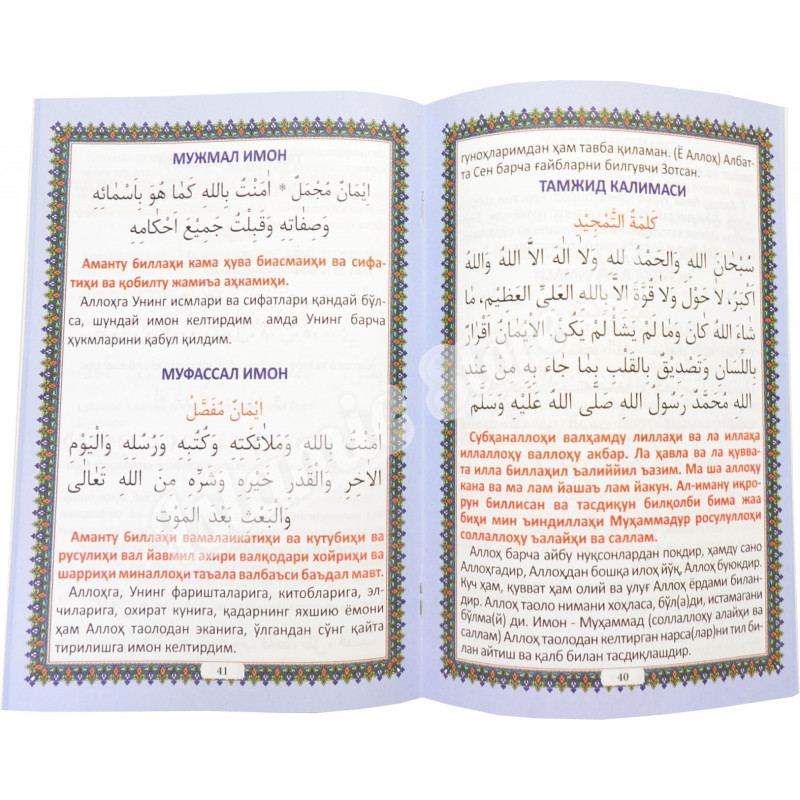 гуноҳларимдан ҳам тавба қиламан. (Ё Аллоҳ) Албат-
та Сен барча ғайбларни билгувчи Зотсан.
ТАМЖИД КАЛИМАСИ
كَلِمَةُ التَّمْجِيْدِ
سُبْحَانَ اللهِ وَالْحَمْدُ لِلهِ وَلاَ اِلٰهَ اِلاَّ اللهُ وَاللهُ
اَكْبَرُ، لاَ حَوْلَ وَلاَ قُوَّةَ اِلاَّ بِاللهِ الْعَلِيِّ الْعَظِيْمِ، مَا
شَاءَ اللهُ كَانَ وَمَا لَمْ يَشَأْ لَمْ يَكُنْ. اَلْاِيْمَانُ اِقْرَارٌ
بِاللِّسَانِ وَتَصْدِيْقٌ بِالْقَلْبِ بِمَا جَاءَ بِهِ مِنْ عِنْدِ
اللهِ مُحَمَّدٌ رَسُولُ اللهِ صَلَّى اللهُ عَلَيْهِ وَسَلَّمَ
Субҳаналлоҳи валҳамду лиллаҳи ва ла иллаҳа
иллаллоҳу валлоҳу акбар. Ла ҳавла ва ла қувва-
та илла биллаҳил ъалиййил ъазим. Ма ша аллоҳу
кана ва ма лам йашаъ лам йакун. Ал-иману иқро-
рун биллисан ва тасдиқун билқолби бима жаа
биҳи мин ъиндиллаҳи Муҳаммадур росулуллоҳи
соллаллоҳу ъалайҳи ва саллам.
Аллоҳ барча айбу нуқсонлардан покдир, ҳамду сано
Аллоҳгадир, Аллоҳдан бошқа илоҳ йўқ, Аллоҳ буюкдир.
Куч ҳам, қувват ҳам олий ва улуғ Аллоҳ ёрдами билан-
дир. Аллоҳ таоло нимани хоҳласа, бўл(а)ди, истамагани
бўлма(й) ди. Имон - Муҳаммад (соллаллоҳу алайҳи ва
саллам) Аллоҳ таолодан келтирган нарса(лар)ни тил би-
лан айтиш ва қалб билан тасдиқлашдир.
40
МУЖМАЛ ИМОН
اِيْمَانٌ مُجْمَلٌ * اٰمَنْتُ بِاللهِ كَمَا هُوَ بِاَسْمَائِهِ
وَصِفَاتِهِ وَقَبِلْتُ جَمِيْعَ اَحْكَامِهِ
Аманту биллаҳи кама ҳува биасмаиҳи ва сифа-
тиҳи ва қобилту жамиъа аҳкамиҳи.
Аллоҳга Унинг исмлари ва сифатлари қандай бўл-
са, шундай имон келтирдим амда Унинг барча
ҳукмларини қабул қилдим.
МУФАССАЛ ИМОН
اِيْمَانٌ مُفَصَّلٌ
اٰمَنْتُ بِاللهِ وَمَلاَئِكَتِهِ وَكُتُبِهِ وَرُسُلِهِ وَالْيَوْمِ
الاٰخِرِ وَالْقَدَرِ خَيْرِهِ وَشَرِّهِ مِنَ اللهِ تَعَالَى
وَالْبَعْثِ بَعْدَ الْمَوْتِ
Аманту биллаҳи вамалаикатиҳи ва кутубиҳи ва
русулиҳи вал йавмил ахири валқодари хойриҳи ва
шарриҳи миналлоҳи таъала валбаъси баъдал мавт.
Аллоҳга, Унинг фаришталарига, китобларига, эл-
чиларига, охират кунига, қадарнинг яхшию ёмони
ҳам Аллоҳ таолодан эканига, ўлгандан сўнг қайта
тирилишга имон келтирдим.
41